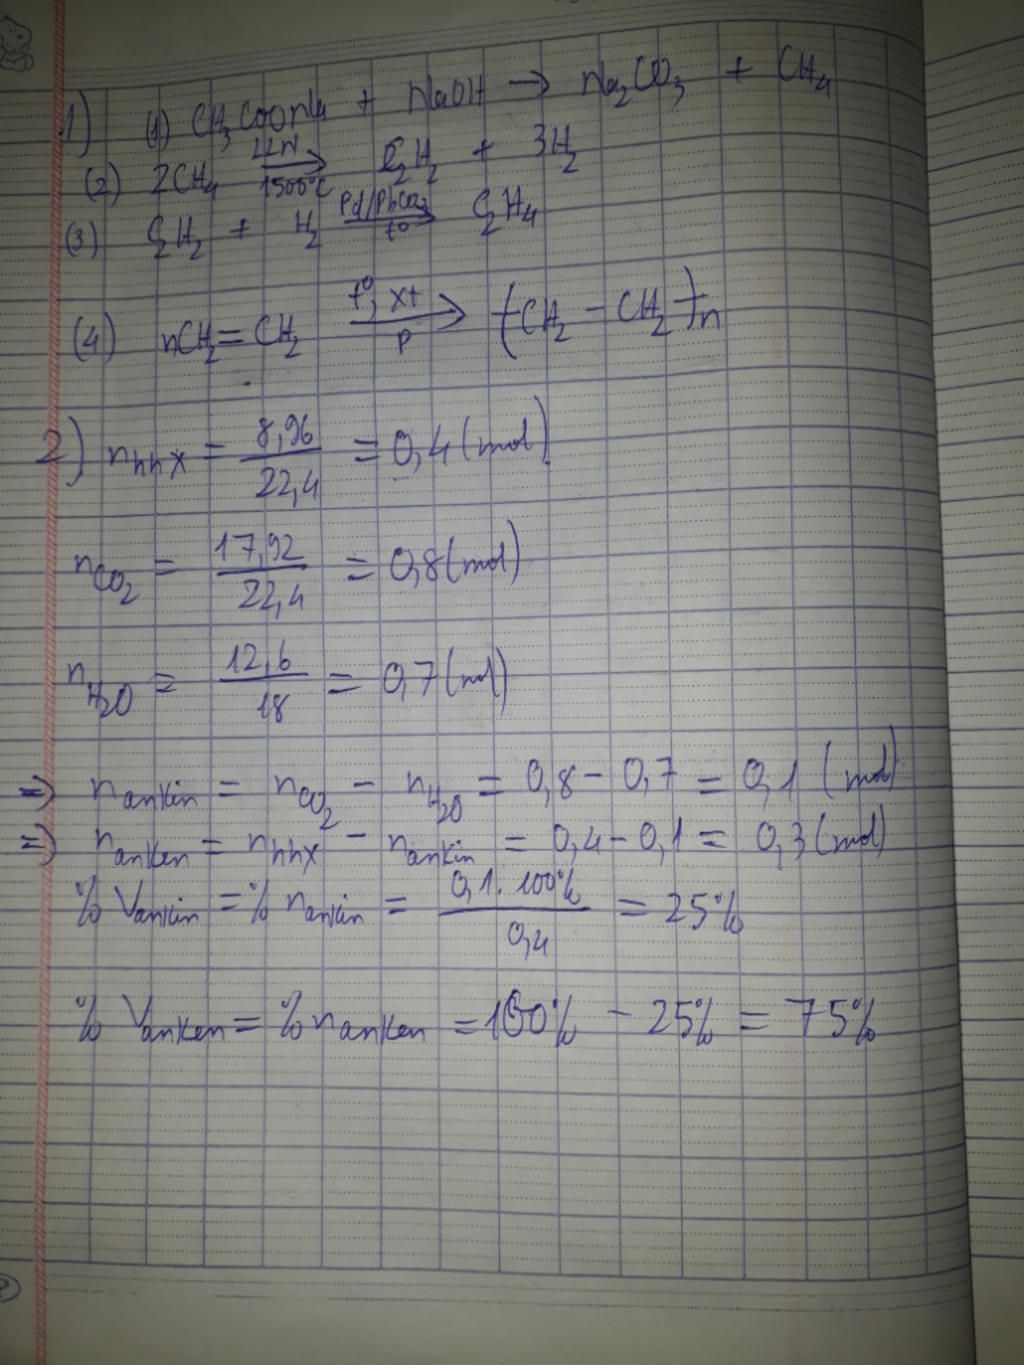 1) (1) CH3COONa + NaOH → Na2CO3 + CH4
(2) 2CH4 LLN 1500°C → C2H2 + 3H2
(3) C2H2 + H2 Pd/PbCO3 t° → C2H4
(4) nCH2 = CH2 t°, xt P → (CH2 – CH2)n
2) nhhX = 8,96 / 22,4 = 0,4 (mol)
nCO2 = 17,92 / 22,4 = 0,8 (mol)
nH2O = 12,6 / 18 = 0,7 (mol)
=> nankin = nCO2 – nH2O = 0,8 – 0,7 = 0,1 (mol)
=> nanken = nhhX – nankin = 0,4 – 0,1 = 0,3 (mol)
% Vankin = % nankin = 0,1. 100% / 0,4 = 25%
% Vanken = % nanken = 100% – 25% = 75%